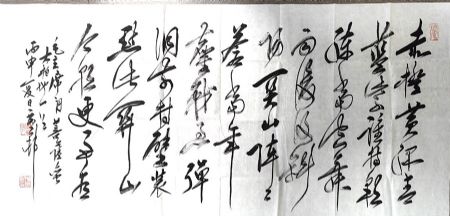 赤橙黄绿青
蓝紫谁持彩
练当空舞
雨后复斜
阳关山阵々
苍当年
鏖战急弹
洞前村壁装
点此关山
今朝更好看
毛主席词菩萨蛮
大柏地一首
丙申夏日